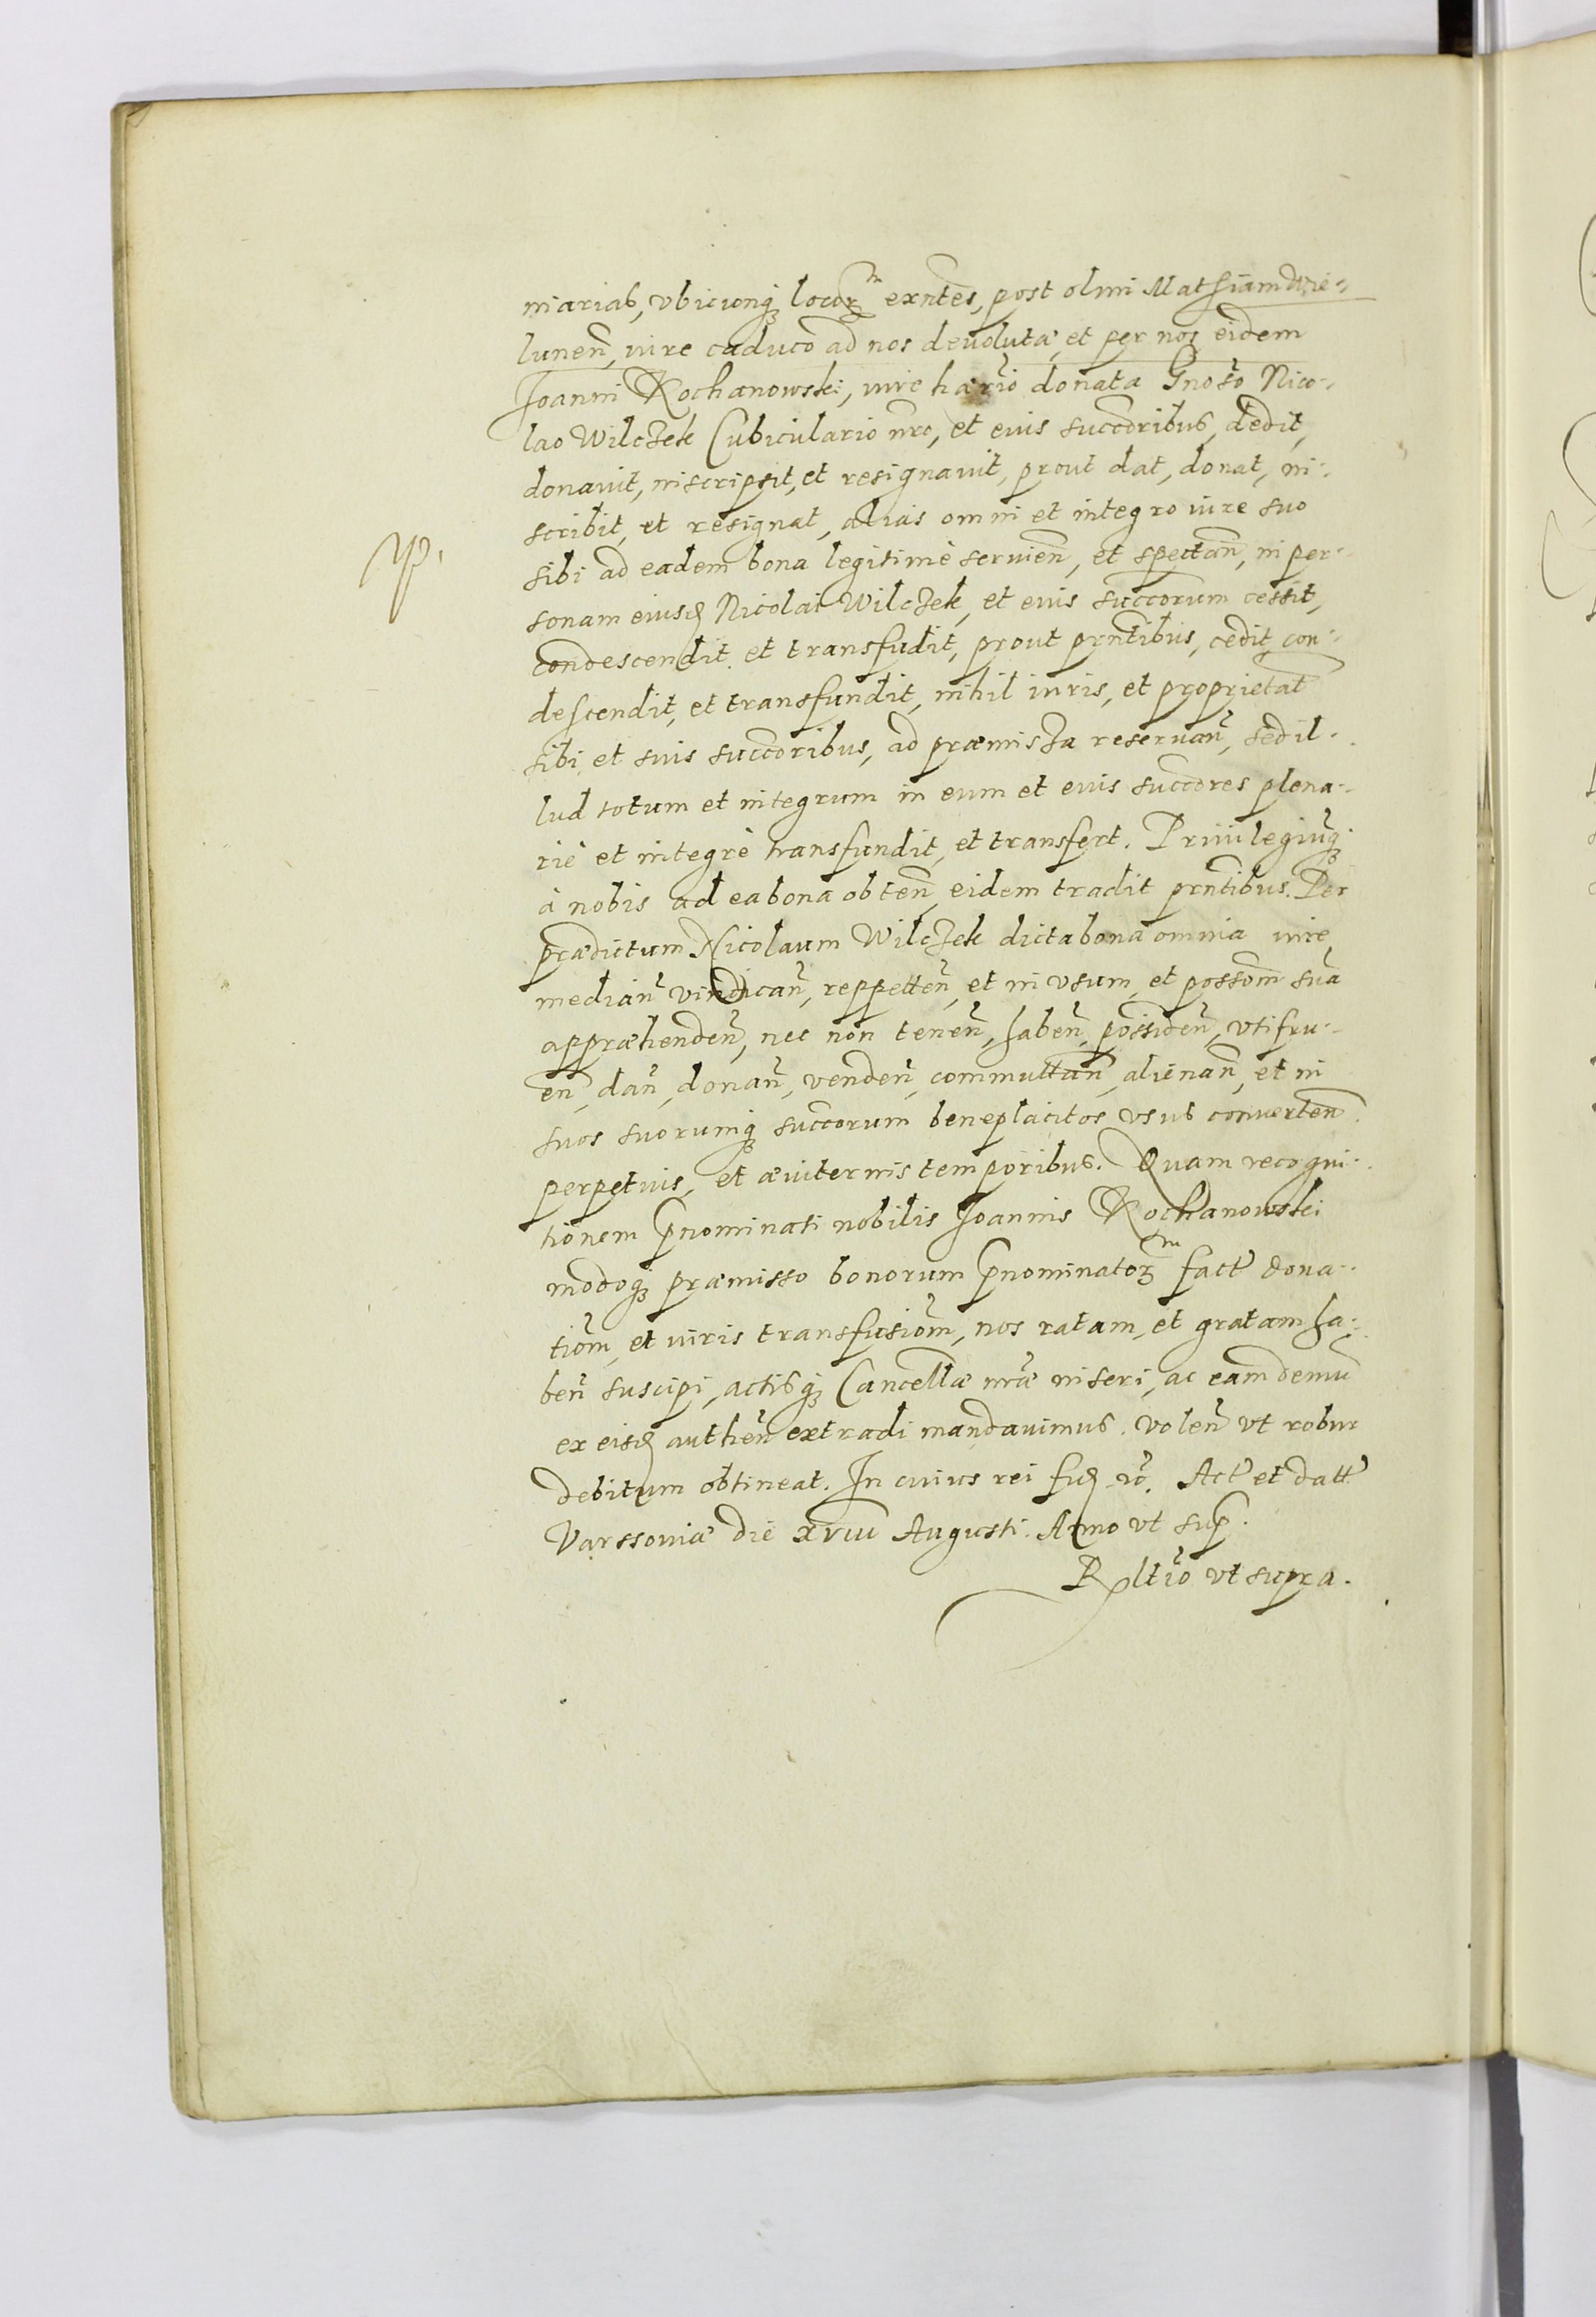 niarias, vbicunq₃ locorum exntes, post olim Mathiam Wie-
lunen, iure caduco ad nos deuoluta, et per nos eidem
Joanni Kochanowski, iure hærio donata Gnoso Nico-
lao Wilczek Cubiculario nro, et euis succoribus, dedit,
donauit, inscripsit, et resignauit, prout dat, donat, in-
scribit, et resignat, alias omni et integro iure suo
sibi ad eadem bona legitimè seruien, et spectan, in per-
sonam eiusd Nicolai Wilczek, et euis succorum cessit,
condescendit et transfudit, prout prntibus, cedit, con-
descendit, et transfundit, nihil iuris, et proprietat
sibi et suis succoribus, ad præmissa reseruan, sed il-
lud totum et integrum in eum et euis succores plena-
riè et integrè transfundit, et transfert. Priuilegiuq₃
à nobis ad ea bona obten, eidem tradit prntibus. Per
prædictum Nicolaum Wilczek dicta bona omnia iure,
median vindican, reppetten, et in vsum, et possom sua
appræhenden, nec non tenen, haben, possiden, vtifru-
en, dan, donan, venden, commuttan, alienan, et in
suos suorumq₃ succorum beneplacitos vsus conuerten.
perpetuis, et æuiternis temporibus. Quam recogni-
tionem pnominati nobilis Joannis Kochanowski
modoq₃ præmisso bonorum pnominatorum fact dona-
tiom, et iuris transfusiom, nos ratam, et gratam ha-
ben suscipi, actisq₃ Cancellæ nræ inseri, ac eam demu
ex eisd authen extradi mandauimus. Volen vt robur
debitum obtineat. In cuius rei fid etc. Act et datt
Varssouiæ die xviii Augusti. Anno vt sup.
Rltio vt supra.